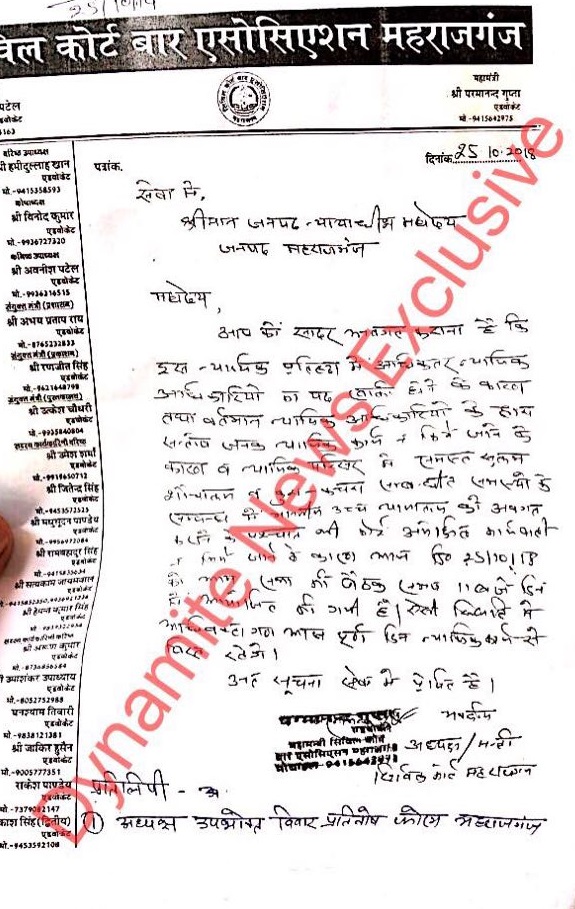 25/10/18
विल कोर्ट बार एसोसिएशन महराजगंज
पटेल
एडवोकेट
महामंत्री
श्री परमानन्द गुप्ता
एडवोकेट
मो.-9415642975
वरिष्ठ उपाध्यक्ष
श्री हमीदुल्लाह खान
एडवोकेट
मो.-9415358593
कोषाध्यक्ष
श्री विनोद कुमार
एडवोकेट
मो.-9936727320
कनिष्ठ उपाध्यक्ष
श्री अवनीश पटेल
एडवोकेट
मो.-9936316515
संयुक्त मंत्री (प्रशासन)
श्री अभय प्रताप राय
एडवोकेट
मो.-8765232833
संयुक्त मंत्री (प्रकाशन)
श्री रणजीत सिंह
एडवोकेट
मो.-9621648798
संयुक्त मंत्री (पुस्तकालय)
श्री उत्केश चौधरी
एडवोकेट
मो.-9935840804
सदस्य कार्यकारिणी वरिष्ठ
श्री उमेश शर्मा
एडवोकेट
मो.-9919650712
श्री जितेन्द्र सिंह
एडवोकेट
मो.-9453572525
श्री मधुसूदन पाण्डेय
एडवोकेट
मो.-9956972084
श्री रामबहादुर सिंह
एडवोकेट
श्री सत्यकाम जायसवाल
एडवोकेट
श्री हेमन्त कुमार सिंह
एडवोकेट
सदस्य कार्यकारिणी कनिष्ठ
कुमार
एडवोकेट
मो.-8736856584
उमाशंकर उपाध्याय
एडवोकेट
मो.-8052752988
घनश्याम तिवारी
एडवोकेट
मो.-9838121381
श्री जाकिर हुसैन
एडवोकेट
मो.-9005777351
राकेश पाण्डेय
एडवोकेट
मो.-7379082147
काश सिंह (द्वितीय)
एडवोकेट
मो.-9453592108
पत्रांक.
दिनांक 25.10.2018
सेवा में,
श्रीमान जनपद न्यायाधीश महोदय
जनपद महराजगंज
महोदय,
आप को सादर अवगत कराना है कि
इस न्यायिक में अधिकतर न्यायिक
अधिकारियों का पद खाली होने के कारण
तथा वर्तमान न्यायिक अधिकारियों के द्वारा
संतोष जनक न्यायिक कार्य न किये जाने के
कारण व न्यायिक परिसर में समस्त
शौचालय व समस्यों के
सम्बन्ध में माननीय उच्च न्यायालय को अवगत
कराने के पश्चात भी कोई अपेक्षित कार्यवाही
न किये जाने के कारण आज दि० 25/10/18
को आम सभा की बैठक समय 11 बजे दिन
में की गयी है। ऐसी स्थिति में
अधिवक्ता गण आज पूरा दिन न्यायिक कार्य से
विरत रहेंगे।
अतः सूचना सेवा में प्रेषित है।
भवदीय
एडवोकेट
महामंत्री सिविल कोर्ट
बार एसोसिएशन महराजगंज
मोबाइल-9415642975
अध्यक्ष / मन्त्री
सिविल कोर्ट महराजगंज
प्रतिलिपी -
① अध्यक्ष उपभोक्ता विवाद प्रतितोष फोरम महराजगंज
Dynamite News Exclusive